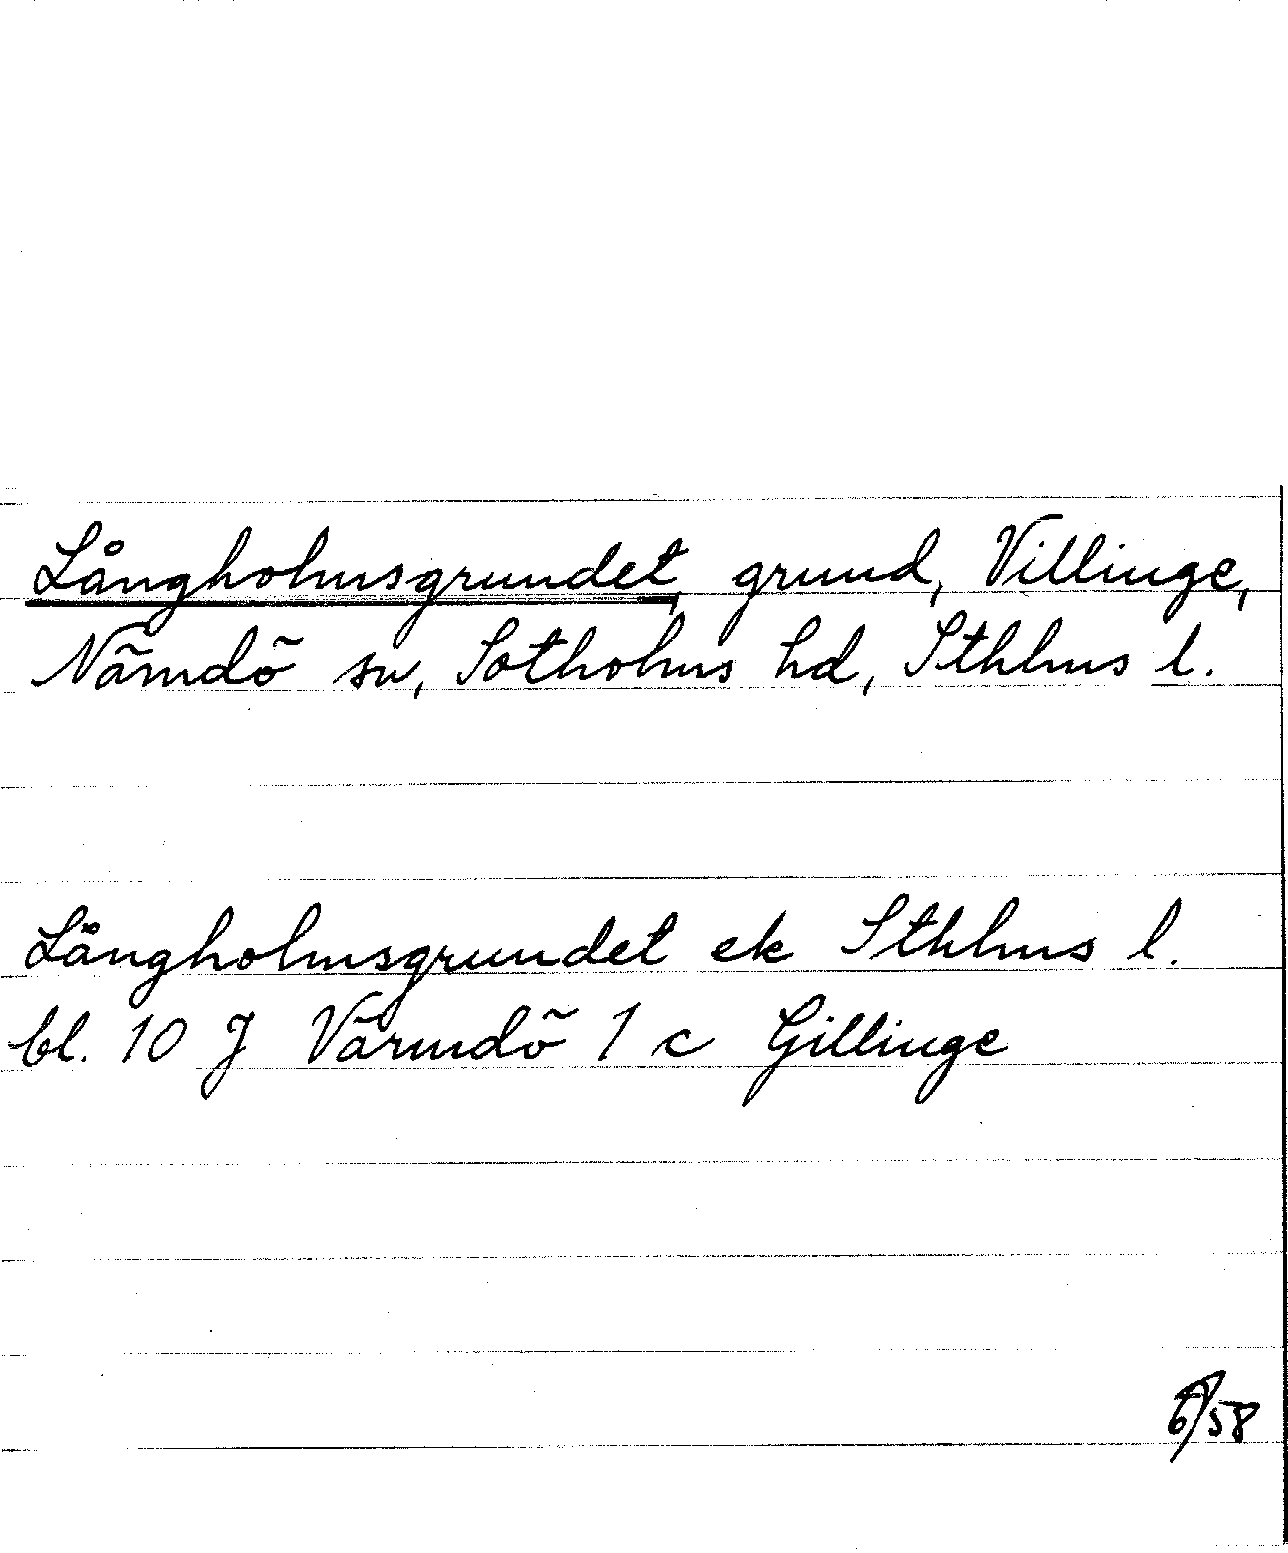 Långholmsgrundet, grund, Villinge,
Nämdö sn, Sotholms hd, Sthlms l.
Långholmsgrundet ek Sthlms l.
bl. 10 J Värmdö 1 c Gillinge
6/58